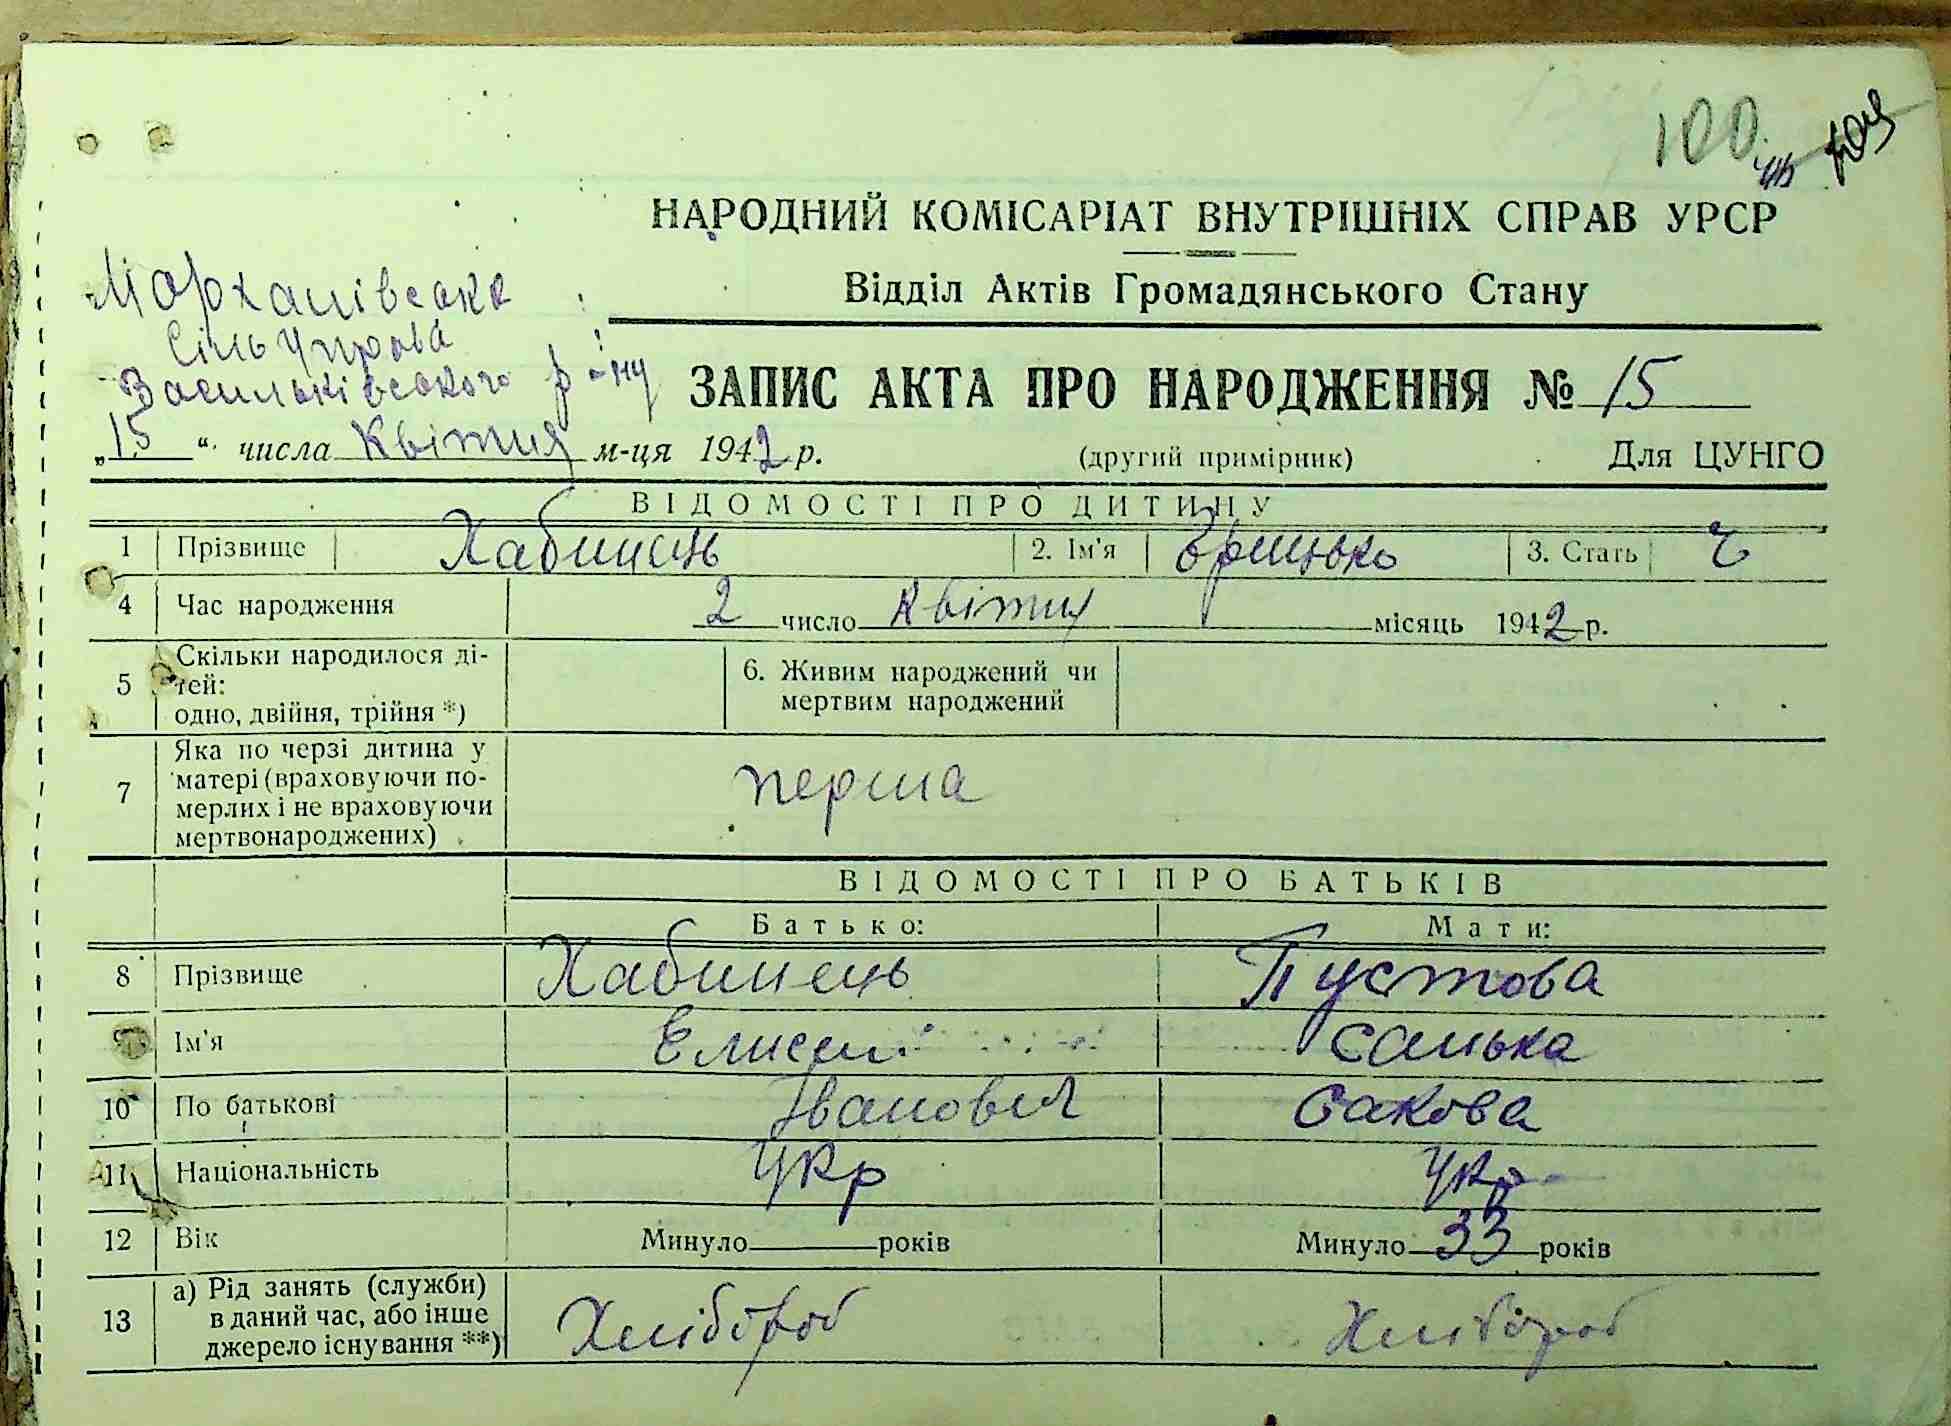 100
НАРОДНИЙ КОМІСАРІАТ ВНУТРІШНІХ СПРАВ УРСР
Відділ Актів Громадянського Стану
Мархалівська
Сільуправа
Васильківського р-ну
ЗАПИС АКТА ПРО НАРОДЖЕННЯ № 15
„15“ числа Квітня м-ця 1942 р. (другий примірник) Для ЦУНГО
ВІДОМОСТІ ПРО ДИТИНУ
1 Прізвище Хабинець 2. Ім'я Грицько 3. Стать ч
4 Час народження 2 число Квітня місяць 1942 р.
5 Скільки народилося ді-
тей:
одно, двійня, трійня *)
6. Живим народжений чи
мертвим народжений
7 Яка по черзі дитина у
матері (враховуючи по-
мерлих і не враховуючи
мертвонароджених)
перша
ВІДОМОСТІ ПРО БАТЬКІВ
Батько: Мати:
8 Прізвище Хабинець Пустова
9 Ім'я Елисей Санька
10 По батькові Іванович Сакова
11 Національність Укр Укр
12 Вік Минуло років Минуло 33 років
13 а) Рід занять (служби)
в даний час, або інше
джерело існування **)
Хлібороб Хлібороб